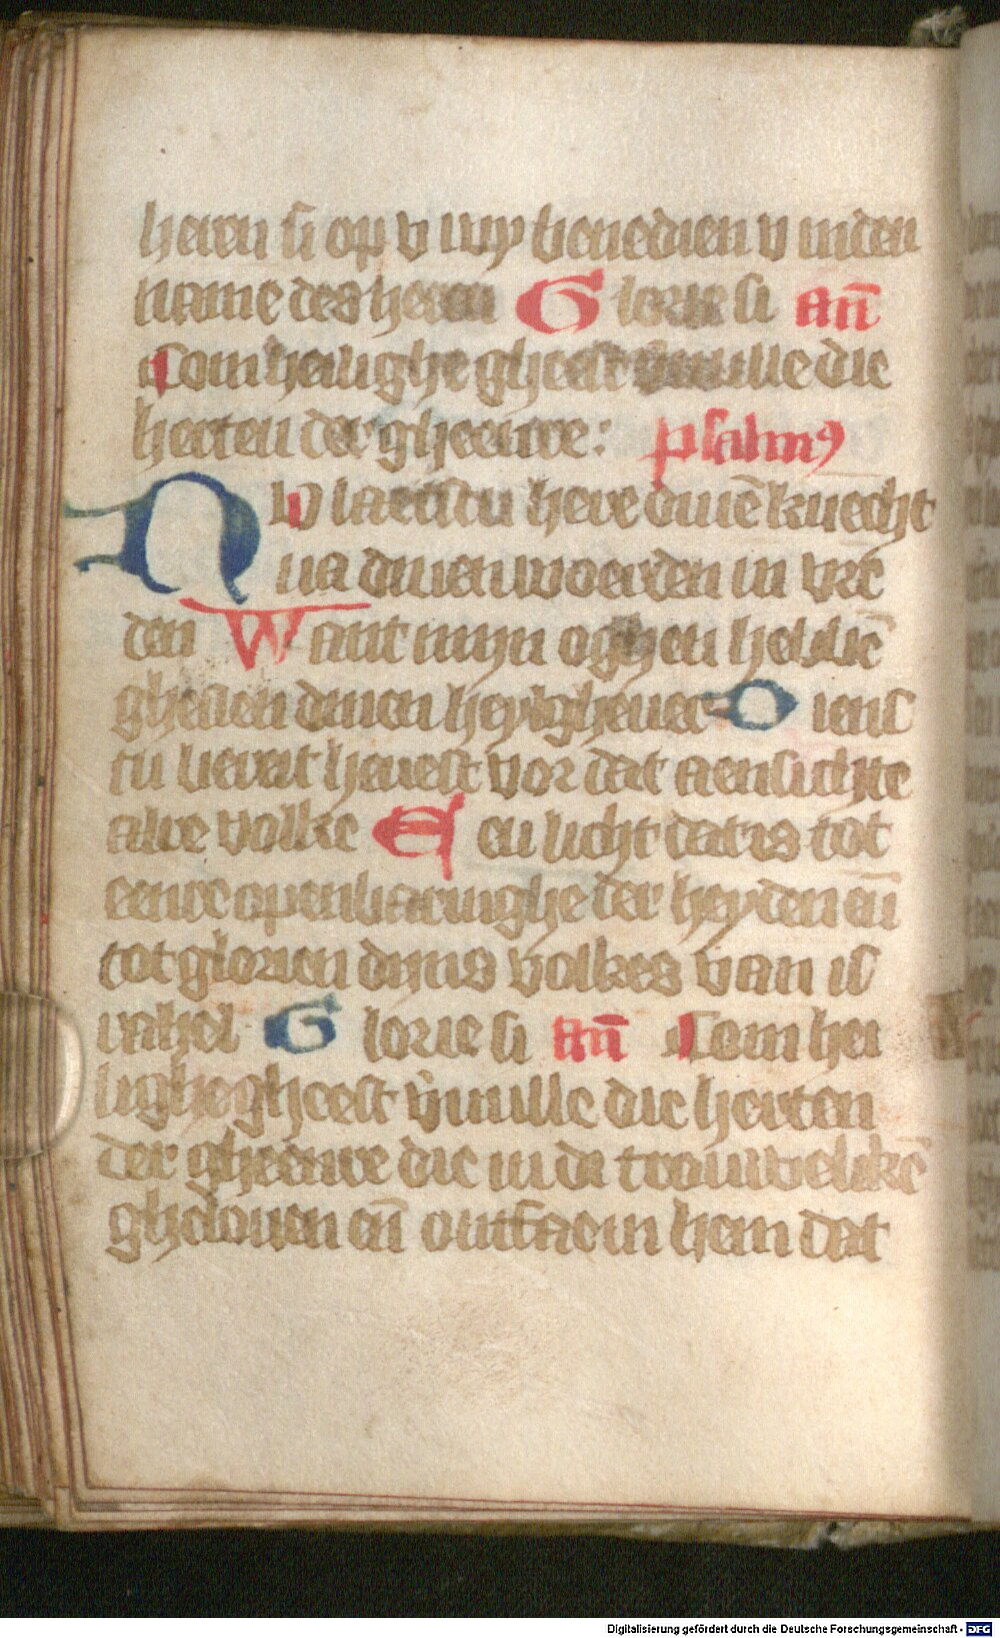 heren si op v wy benedien v inden
name des heren Glorie si an̄
Com heilighe gheest v̄uulle die
herten der gheenre: psalmꝯ
NV laetstu here dinē knecht
na dinen woerden in vre
den Want mijn oghen hebbē
ghesien dinen heylgheuer Dien
tu bereit heuest vor dat aensichte
alre volke Een licht dat is tot
eenre openbaringhe der heyden en̄
tot glorien dyns volkes van is
rahel Glorie si an̄ Com hei
lighe gheest v̄uulle die herten
der gheenre die in di trouwelikē
ghelouen en̄ ontfaem hem dat
Digitalisierung gefördert durch die Deutsche Forschungsgemeinschaft - DFG